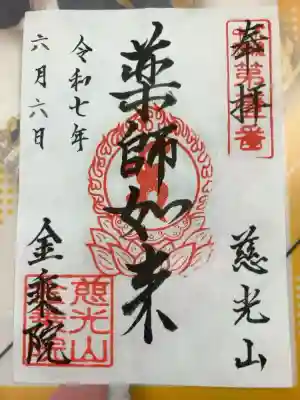 奉拝
慈光山
薬師如来
令和七年
六月六日
金乗院
慈光山